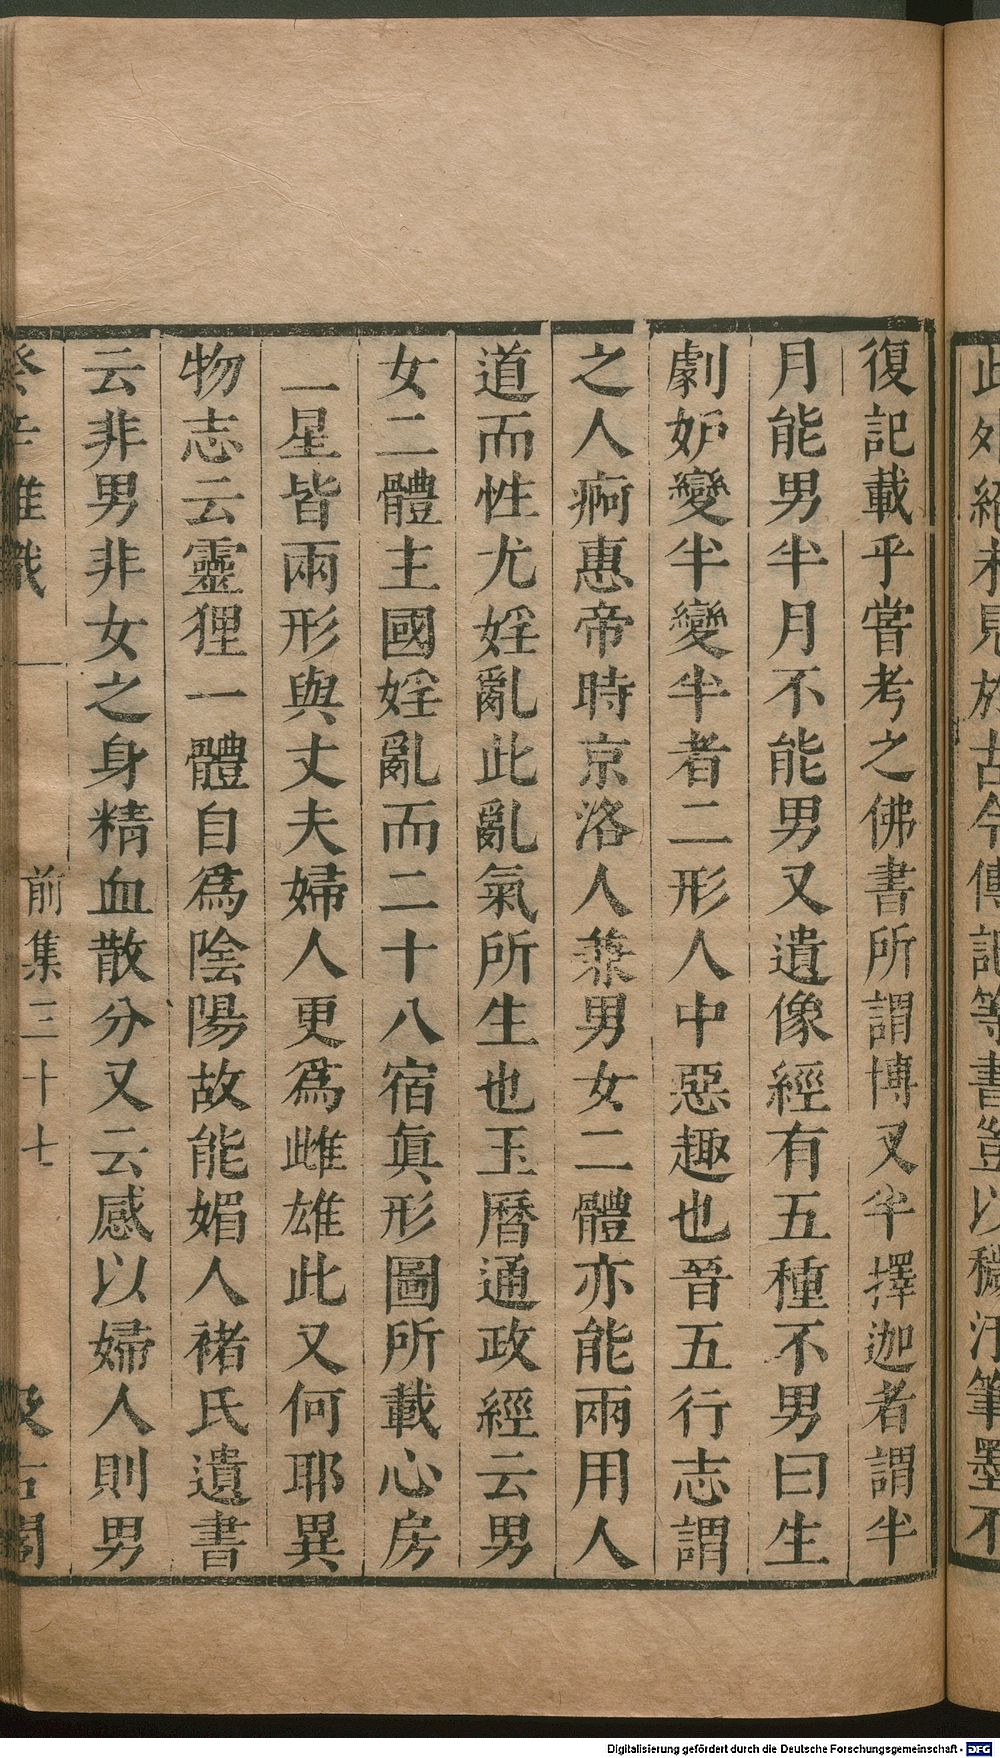 此外絕未見於古今傳記等書豈以穢汙筆墨不
復記載乎嘗考之佛書所謂博叉半擇迦者謂半
月能男半月不能男又遺像經有五種不男曰生
劇妒變半變半者二形人中惡趣也晉五行志謂
之人痾惠帝時京洛人兼男女二體亦能兩用人
道而性尤婬亂此亂氣所生也玉曆通政經云男
女二體主國婬亂而二十八宿眞形圖所載心房
一星皆兩形與丈夫婦人更爲雌雄此又何耶異
物志云靈狸一體自爲陰陽故能媚人褚氏遺書
云非男非女之身精血散分又云感以婦人則男
癸辛雜識 前集三十七 汲古閣
Digitalisierung gefördert durch die Deutsche Forschungsgemeinschaft - DFG